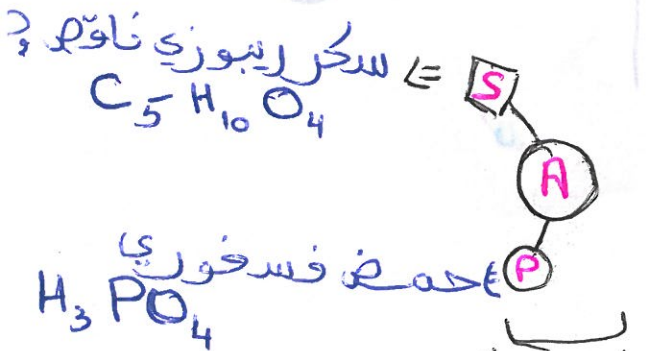 سكر ريبوزي ناقص ؟ S
C₅H₁₀O₄
A
حمض فسفوري P
H₃PO₄